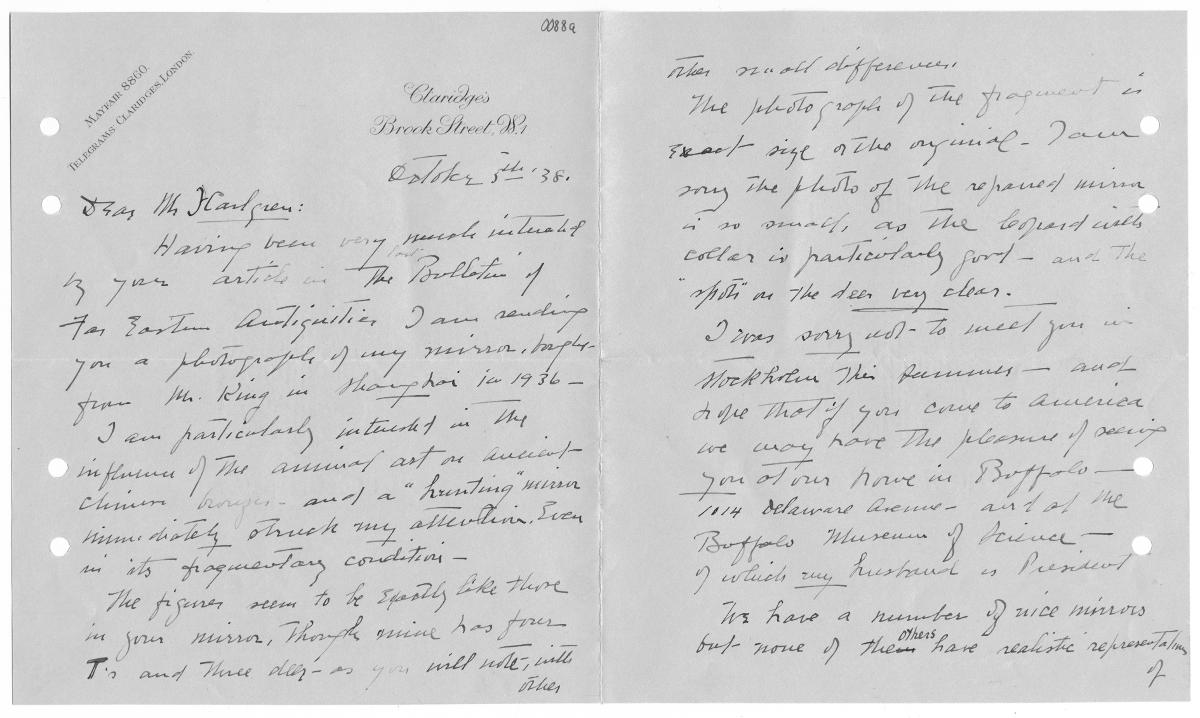 0088a
MAYFAIR 8860.
TELEGRAMS: CLARIDGES, LONDON.
Claridge's
Brook Street, W.1
October 5th '38.
Dear Mr Karlgren:
Having been very much interested
by your last article in The Bulletin of
Far Eastern Antiquities I am sending
you a photograph of my mirror, bought
from Mr. King in Shanghai in 1936 –
I am particularly interested in the
influence of the animal art on ancient
Chinese bronzes – and a "hunting" mirror
immediately struck my attention. Even
in its fragmentary condition –
The figures seem to be exactly like those
in your mirror, though mine has four
T's and three deer – as you will note, with
other
other small differences.
The photograph of the fragment is
exact size of the original – I am
sorry the photo of the repaired mirror
is so small, as the leopard with
collar is particularly good – and the
"spots" on the deer very clear.
I was sorry not to meet you in
Stockholm this summer – and
hope that if you come to America
we may have the pleasure of seeing
you at our home in Buffalo –
1014 Delaware Avenue – and at the
Buffalo Museum of Science –
of which my husband is President
We have a number of nice mirrors
but none of the others have realistic representations
of